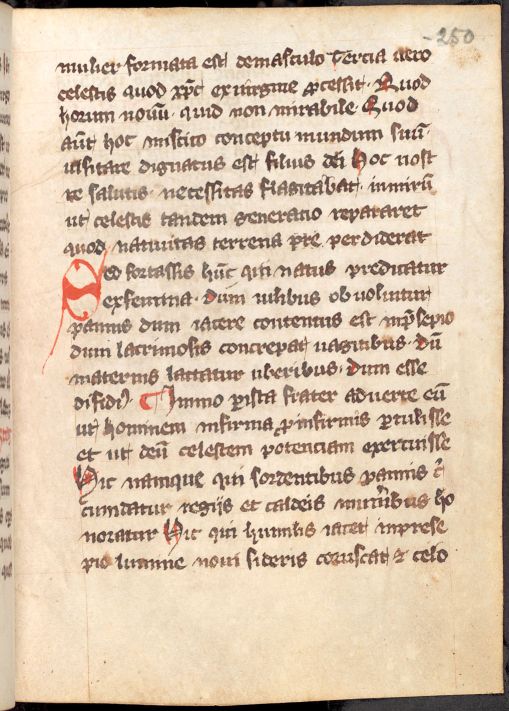 250
mulier formata est de masculo Tercia uero
celestis quod xp̄c ex uirgine ꝓcessit · Quod
horum nouū · quid non mirabile · Quod
aūt hoc inscito conceptu mundum suū ·
uisitare dignatus est filius dei Hoc nost
re salutis · necessitas flagitabat · inmirū
ut celestis tandem generacio repararet
quod natiuitas terrena p̄re perdiderat
Sed fortassis hūc qui natus predicatur
ex femina · dum uilibus obuoluitur
pannis dum iacere contentus est in p̄sepio
dum lacrimosis concrepat uagitibus · dū
maternis lactatur uberibus · dum esse
difidis ¶ Immo ꝑ ista frater aduerte eū
ut hominem infirma ꝓ infirmis ꝑtulisse
et ut deū celestem potenciam exercuisse
Hic namque qui sordentibus pannis cͥ
cumdatur regijs et caldeis mun̄ibus ho
noratur Hic qui humilis iacet in prese
pio lumine noui sideris coruscat ⁊ celo